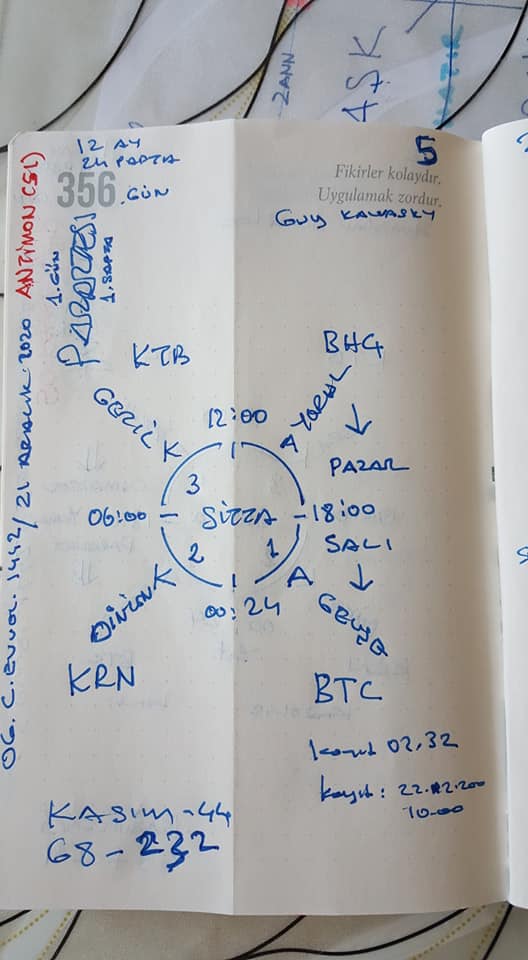 ZANN
AŞK
12 AY
24 PAFTA
356.GÜN
5
Fikirler kolaydır.
Uygulamak zordur.
Guy KAWASKY
ANTİMON (51)
06. C.EVVOL. 1442/ 21 ARALIK. 2020
1. GÜN
PAZARTESİ
KTB
BHG
GEZİLK
12:00
A
PAZAR
3
06:00
SİZZA
18:00
SALI
2
1
DİNİONK
00:24
A
KRN
BTC
kayıt 02.32
kayıt: 22.12.200
10.00
KASIM-44
68-232